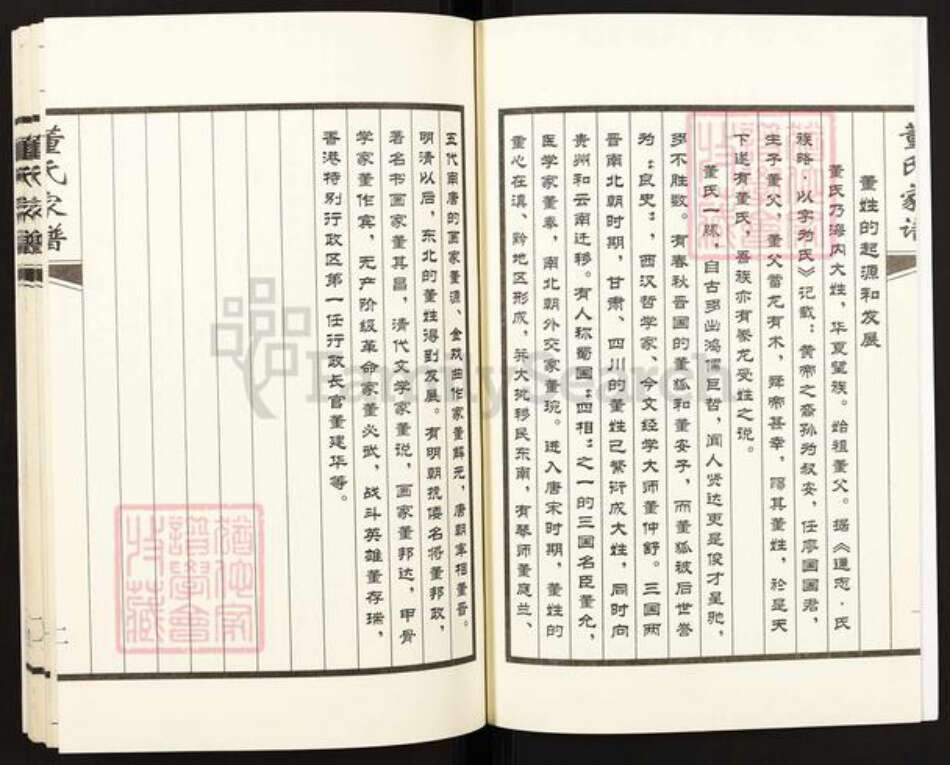 董氏家谱
董姓的起源和发展
董氏乃海内大姓，华夏望族。始祖董父。据《通志·氏
族略·以字为氏》记载：黄帝之裔孙为叔安，任廖国国君，
生子董父，董父蓄龙有术，舜帝甚幸，赐其董姓，于是天
下遂有董氏，吾族亦有豢龙受姓之说。
董氏一脉，自古多出鸿儒巨哲，闻人贤达更是俊才星驰，
多不胜数。有春秋晋国的董狐和董安子，而董狐被后世誉
为：良史；西汉哲学家、今文经学大师董仲舒。三国两
晋南北朝时期，甘肃、四川的董姓已繁衍成大姓，同时向
贵州和云南迁移。有人称蜀国：四相：之一的三国名臣董允，
医学家董奉，南北朝外交家董琬。进入唐宋时期，董姓的
重心在滇、黔地区形成，并大批移民东南，有琴师董庭兰、
五代南唐的画家董源、金戏曲作家董解元，唐朝宰相董晋。
明清以后，东北的董姓得到发展。有明朝抗倭名将董邦政，
著名书画家董其昌，清代文学家董说，画家董邦达，甲骨
学家董作宾，无产阶级革命家董必武，战斗英雄董存瑞，
香港特别行政区第一任行政长官董建华等。
董氏家谱
二
犹他家
谱学会
收藏
犹他家
谱学会
收藏
FamilySearch